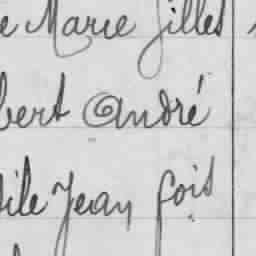 e Marie Gilles
bert André
ile Jean fois